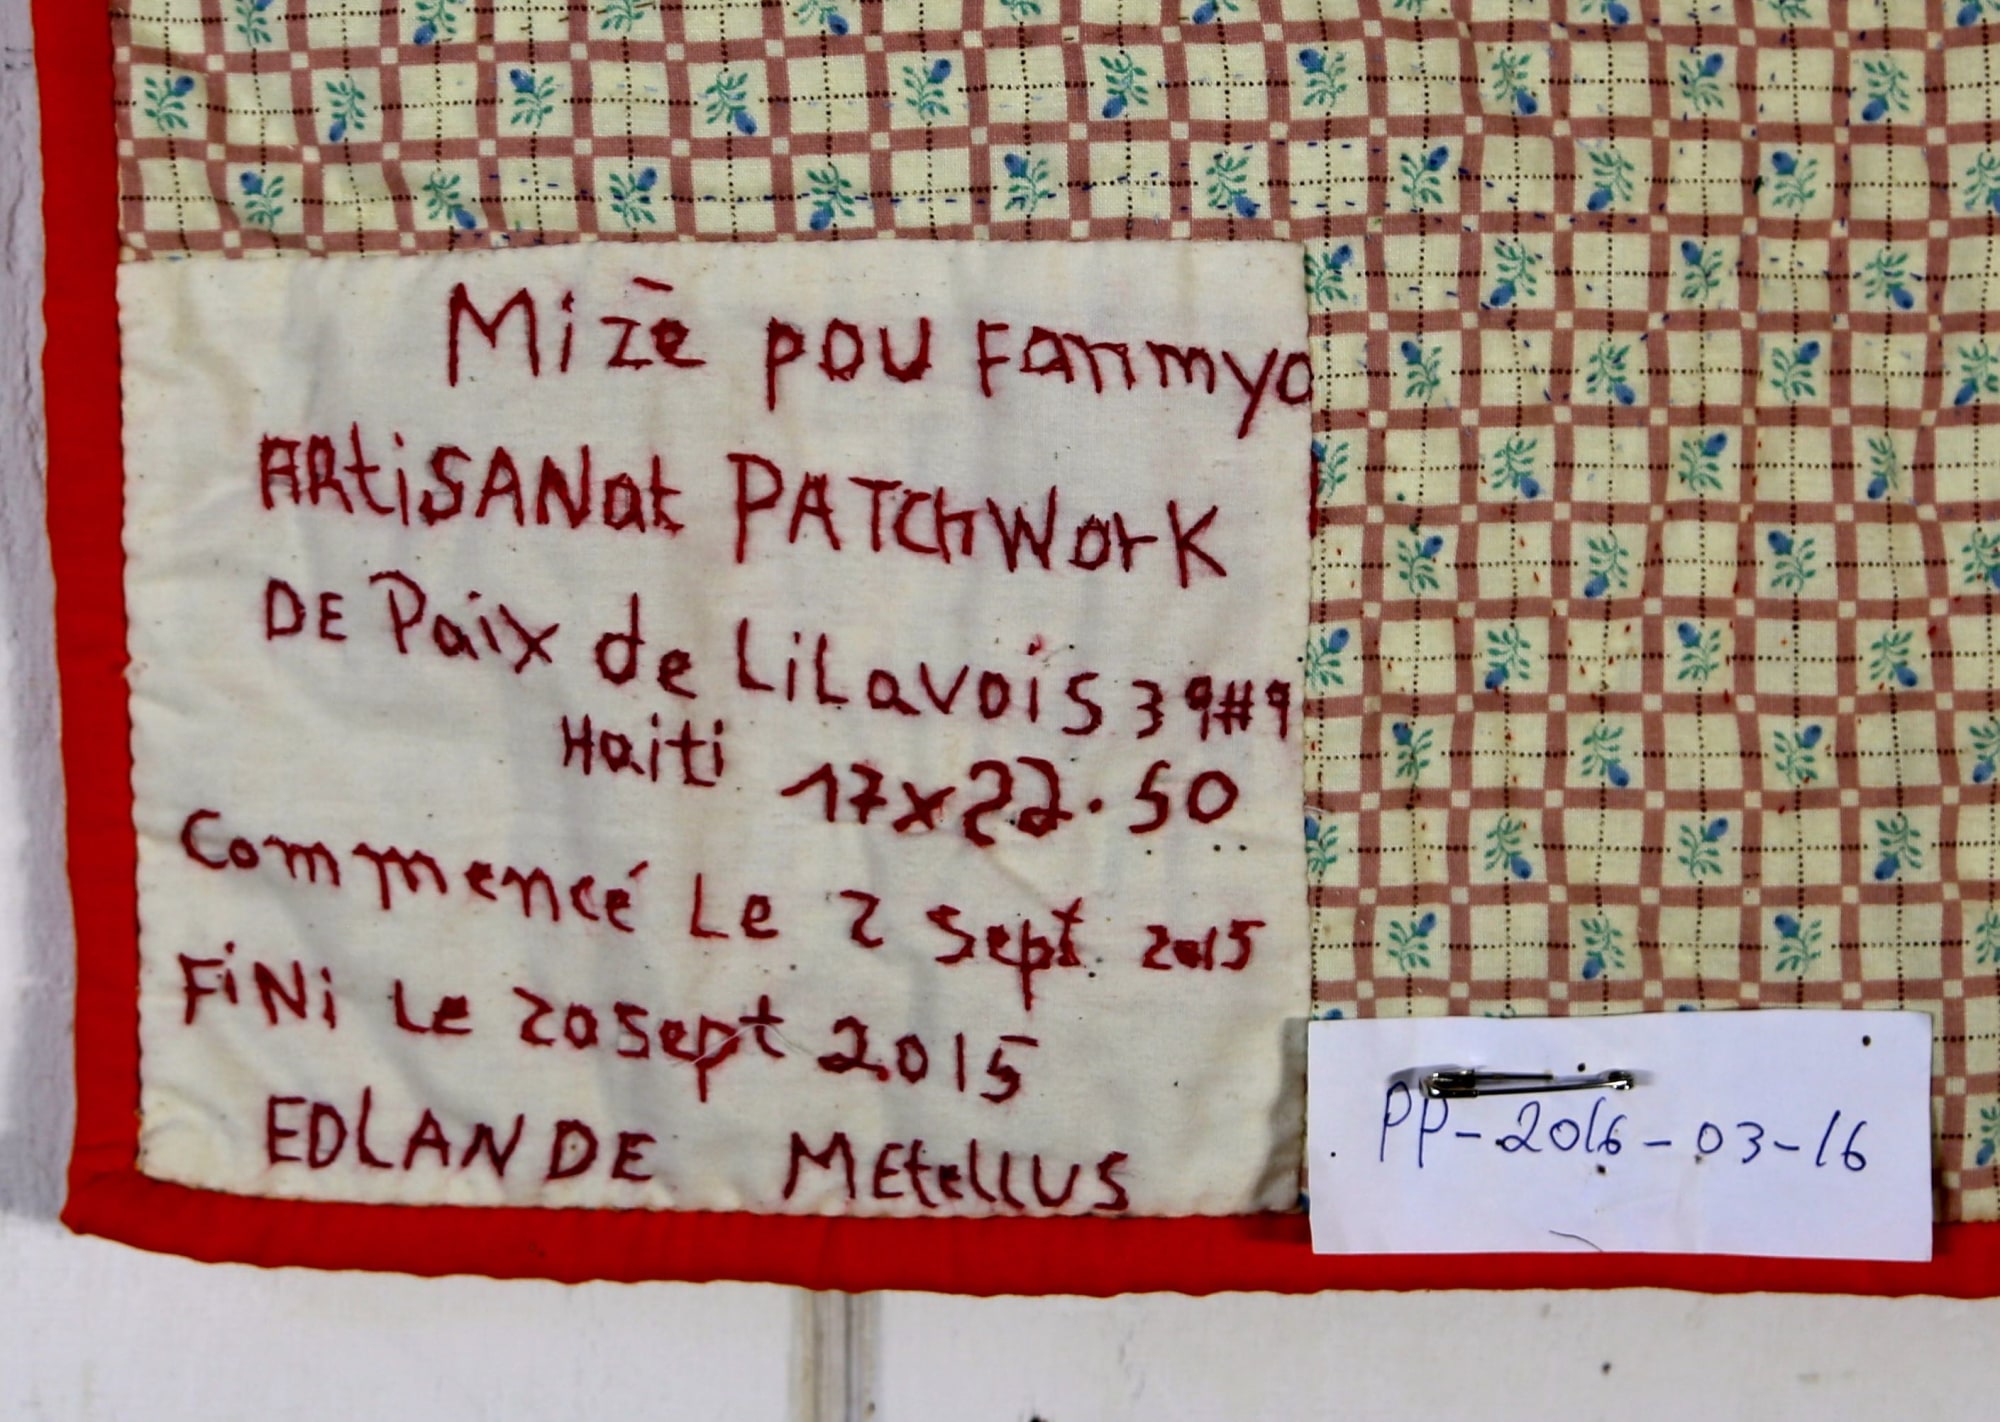 Mizè pou Fanmyo
ARtiSANat PATChWork
DE Paix de LiLavois 39#9
Haiti 17x22.50
Commencé Le 2 Sept. 2015
FiNi Le 20 Sept 2015
EDLANDE MEtellUS
PP-2016-03-16